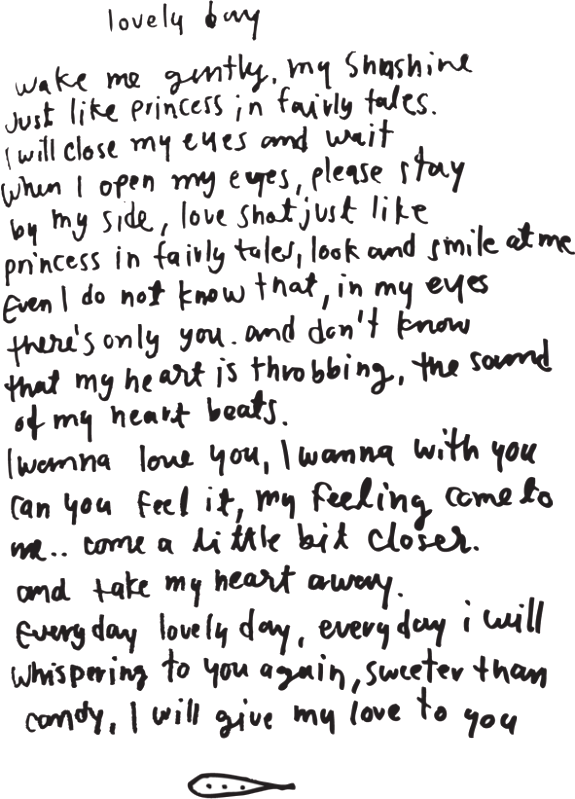 lovely day
wake me gently, my Shnshine
Just like princess in fairly tales.
I will close my eyes and wait
When I open my eyes, please stay
by my side, love shot just like
princess in fairly tales, look and smile at me
Even I do not know that, in my eyes
there's only you. and don't know
that my heart is throbbing, the sound
of my heart beats.
I wanna love you, I wanna with you
can you feel it, my feeling come to
me.. come a little bit closer.
and take my heart away.
Every day lovely day, every day i will
whispering to you again, sweeter than
candy, I will give my love to you